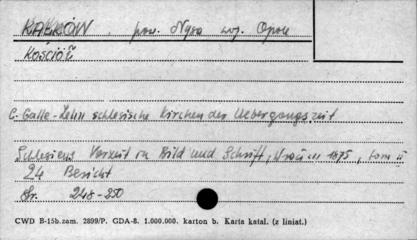 KAŁKÓW . pow. Nysa woj. Opole
Kościół
C. Galle - Zehn schlesische Kirchen der Uebergangszeit
Schlesiens Vorzeit in Bild und Schrift, 1875, tom II
24 Bericht
Str. 248-250
CWD B-15b.zam. 2899/P. GDA-8. 1.000.000. karton b. Karta katal. (z liniat.)